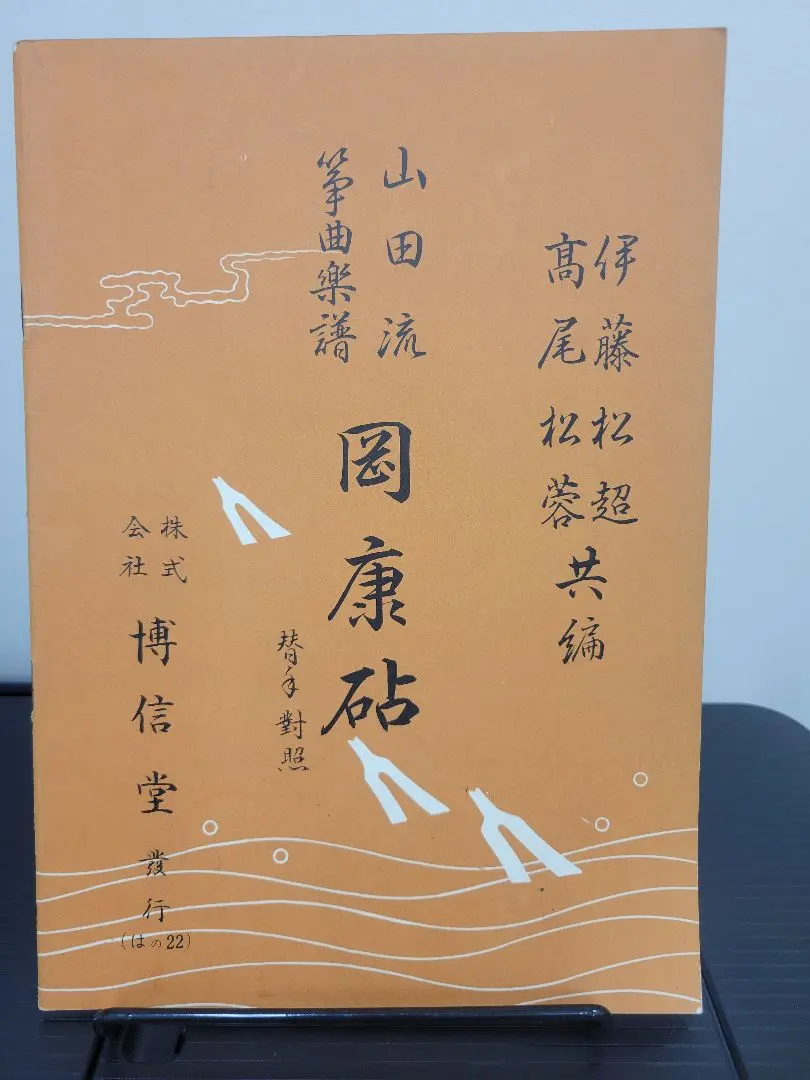 伊藤松超
髙尾松蓉
共編
山田流
箏曲樂譜
岡康砧
替手對照
株式
会社
博信堂發行
(はの22)